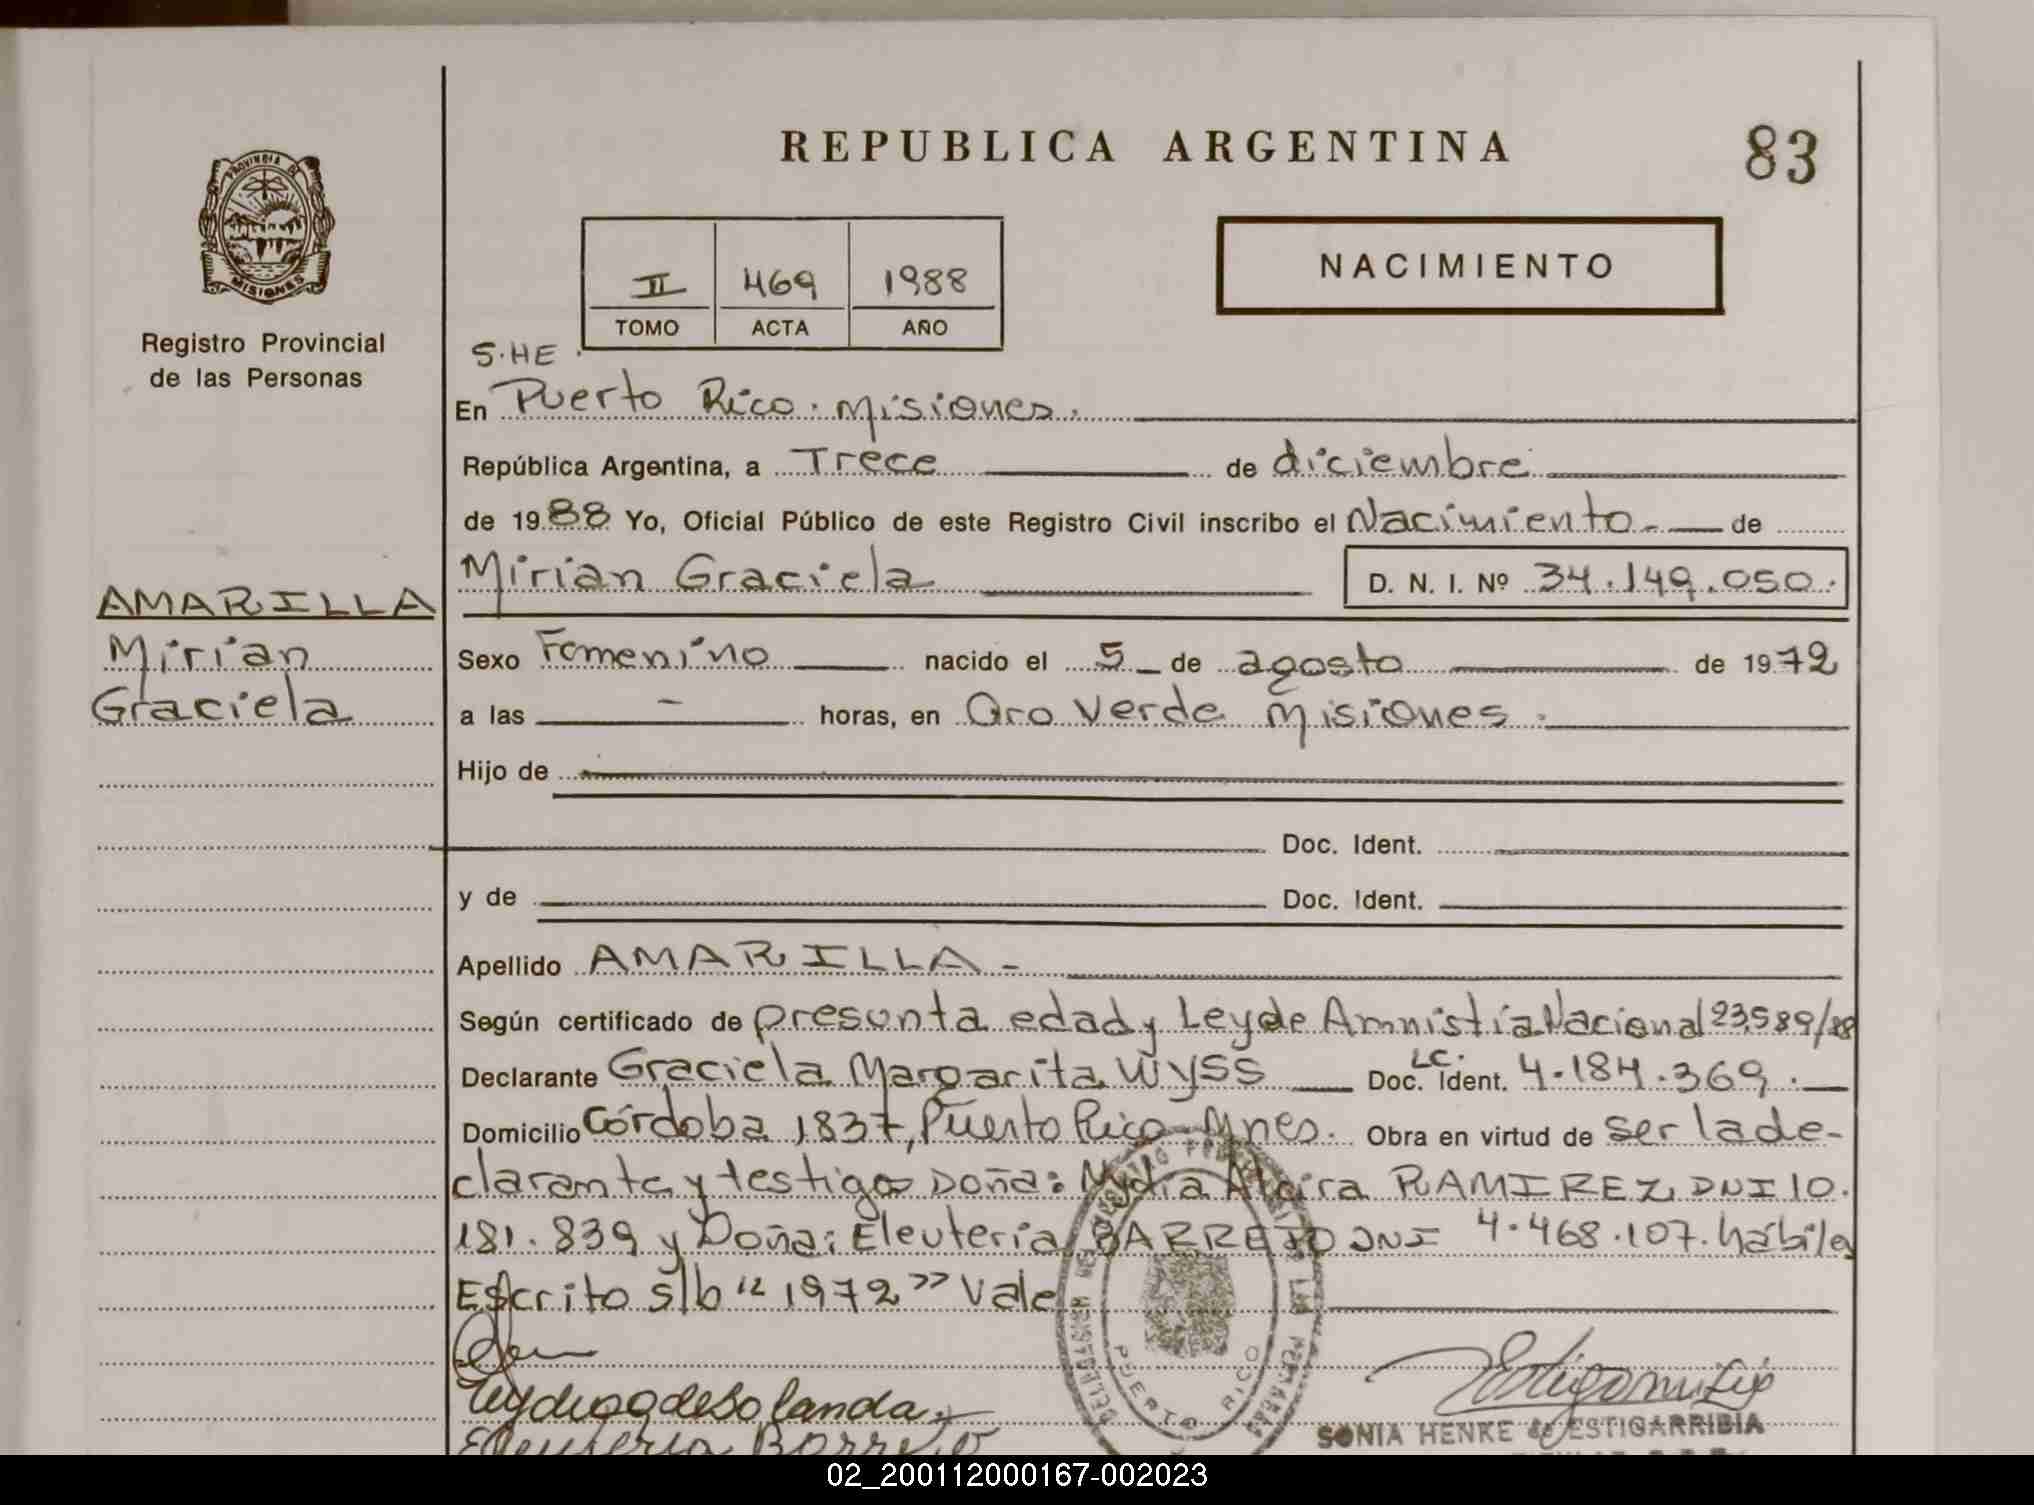 REPUBLICA ARGENTINA
83
PROVINCIA DE
MISIONES
Registro Provincial
de las Personas
II 469 1988
TOMO ACTA AÑO
NACIMIENTO
S.HE.
En Puerto Rico. Misiones.
República Argentina, a Trece de diciembre
de 1988 Yo, Oficial Público de este Registro Civil inscribo el Nacimiento.- de
Mirian Graciela D. N. I. Nº 34.149.050.
AMARILLA
Mirian
Graciela
Sexo Femenino nacido el 5 de agosto de 1972
a las - horas, en Oro Verde Misiones.
Hijo de
Doc. Ident.
y de Doc. Ident.
Apellido AMARILLA -
Según certificado de presunta edad y Ley de Amnistía Nacional 23.589/88
Declarante Graciela Margarita Wyss Doc. Ident. LC. 4.184.369.
Domicilio Córdoba 1837, Puerto Rico Mnes. Obra en virtud de ser la de-
clarante y testigos Doña: Alcira RAMIREZ, DNI 10.
181.839 y Doña: Eleuteria BARRETO DNI 4.468.107. hábiles
Escrito s/b "1972" Vale
PUERTO RICO
SONIA HENKE de ESTIGARRIBIA
02_200112000167-002023